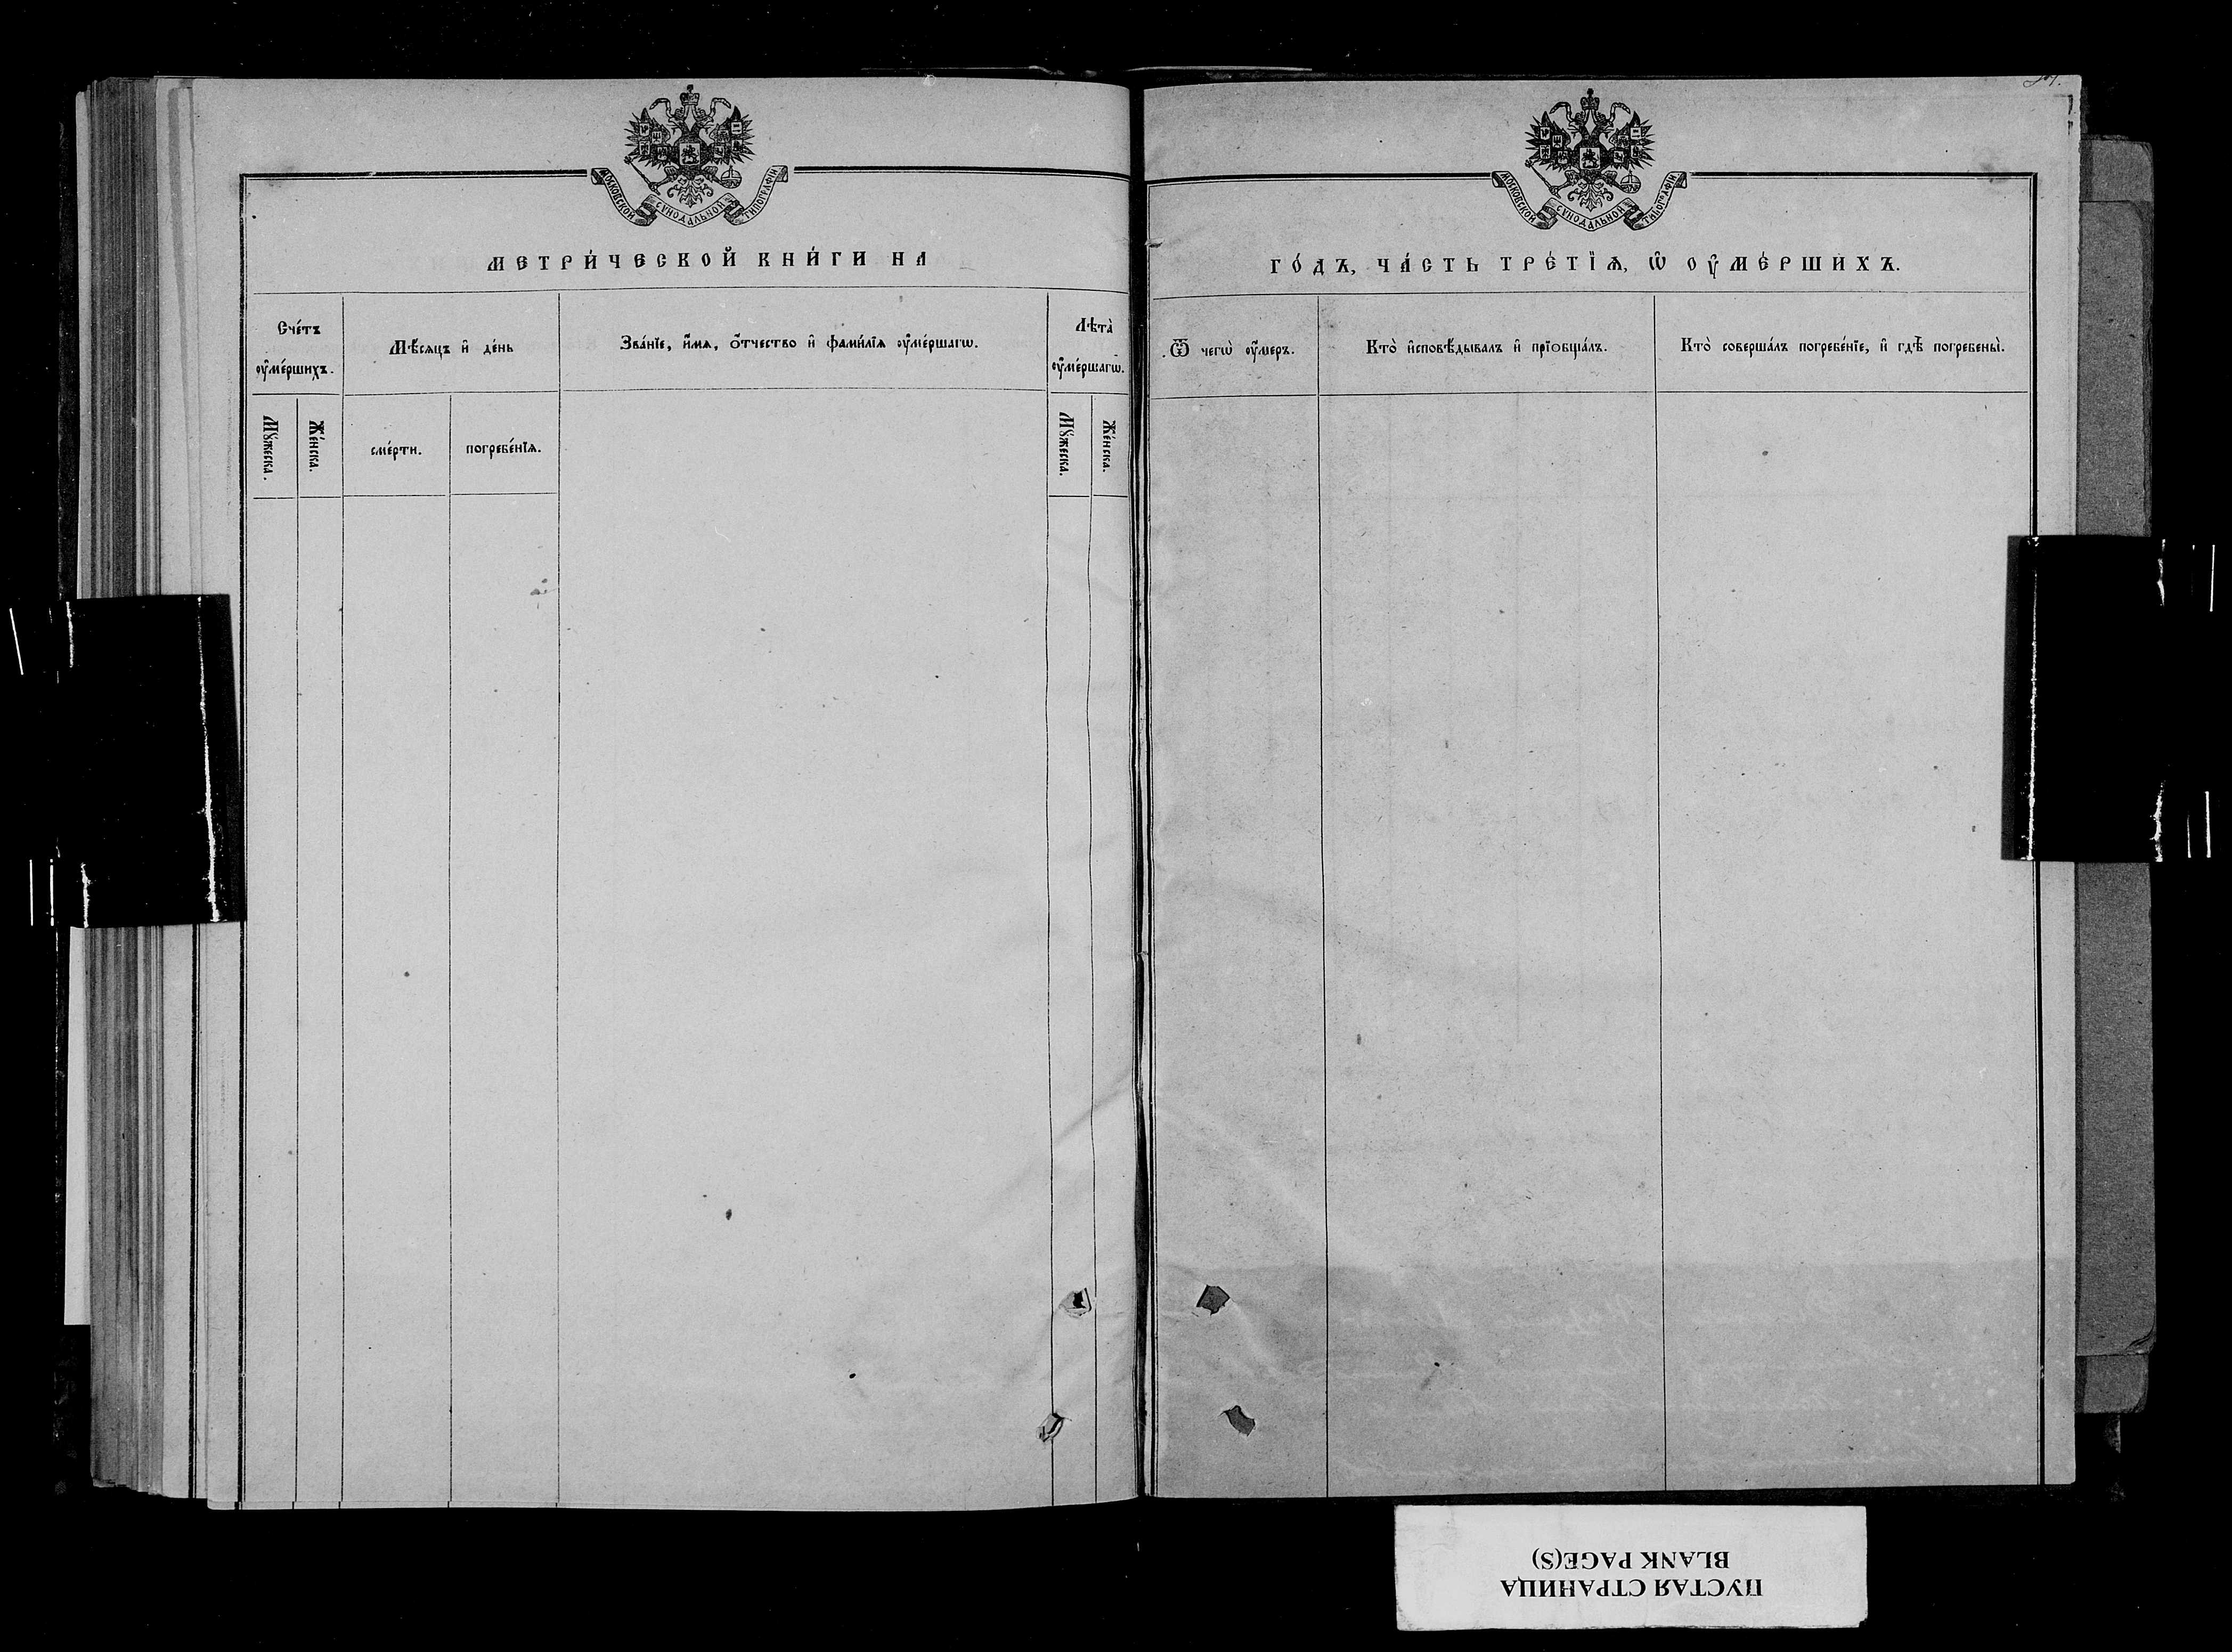 МОСКОВСКОЙ СѴНОДАЛЬНОЙ ТИПОГРАФІИ
МЕТРИ́ЧЕСКОЙ КНИ́ГИ НА
Сче́тъ
ᲂу҆ме́ршихъ.
Мѣ́сяцъ и҆ де́нь
Зва́нїе, и҆́мѧ, ѻ҆́тчество и҆ фами́лїѧ ᲂу҆ме́ршагѡ.
Лѣта̀
ᲂу҆ме́ршагѡ.
Мꙋ́жеска.
Же́нска.
сме́рти.
погребе́нїѧ.
Мꙋ́жеска.
Же́нска.
МОСКОВСКОЙ СѴНОДАЛЬНОЙ ТИПОГРАФІИ
ГО́ДЪ, ЧА́СТЬ ТРЕ́ТЇѦ, Ѡ҆ ОУ҆МЕ́РШИХЪ.
Ѿ чегѡ̀ ᲂу҆́меръ.
Кто̀ и҆сповѣ́дывалъ и҆ прїобща́лъ.
Кто̀ соверша́лъ погребе́нїе, и҆ гдѣ̀ погребены̀.
ПУСТАЯ СТРАНИЦА
BLANK PAGE(S)